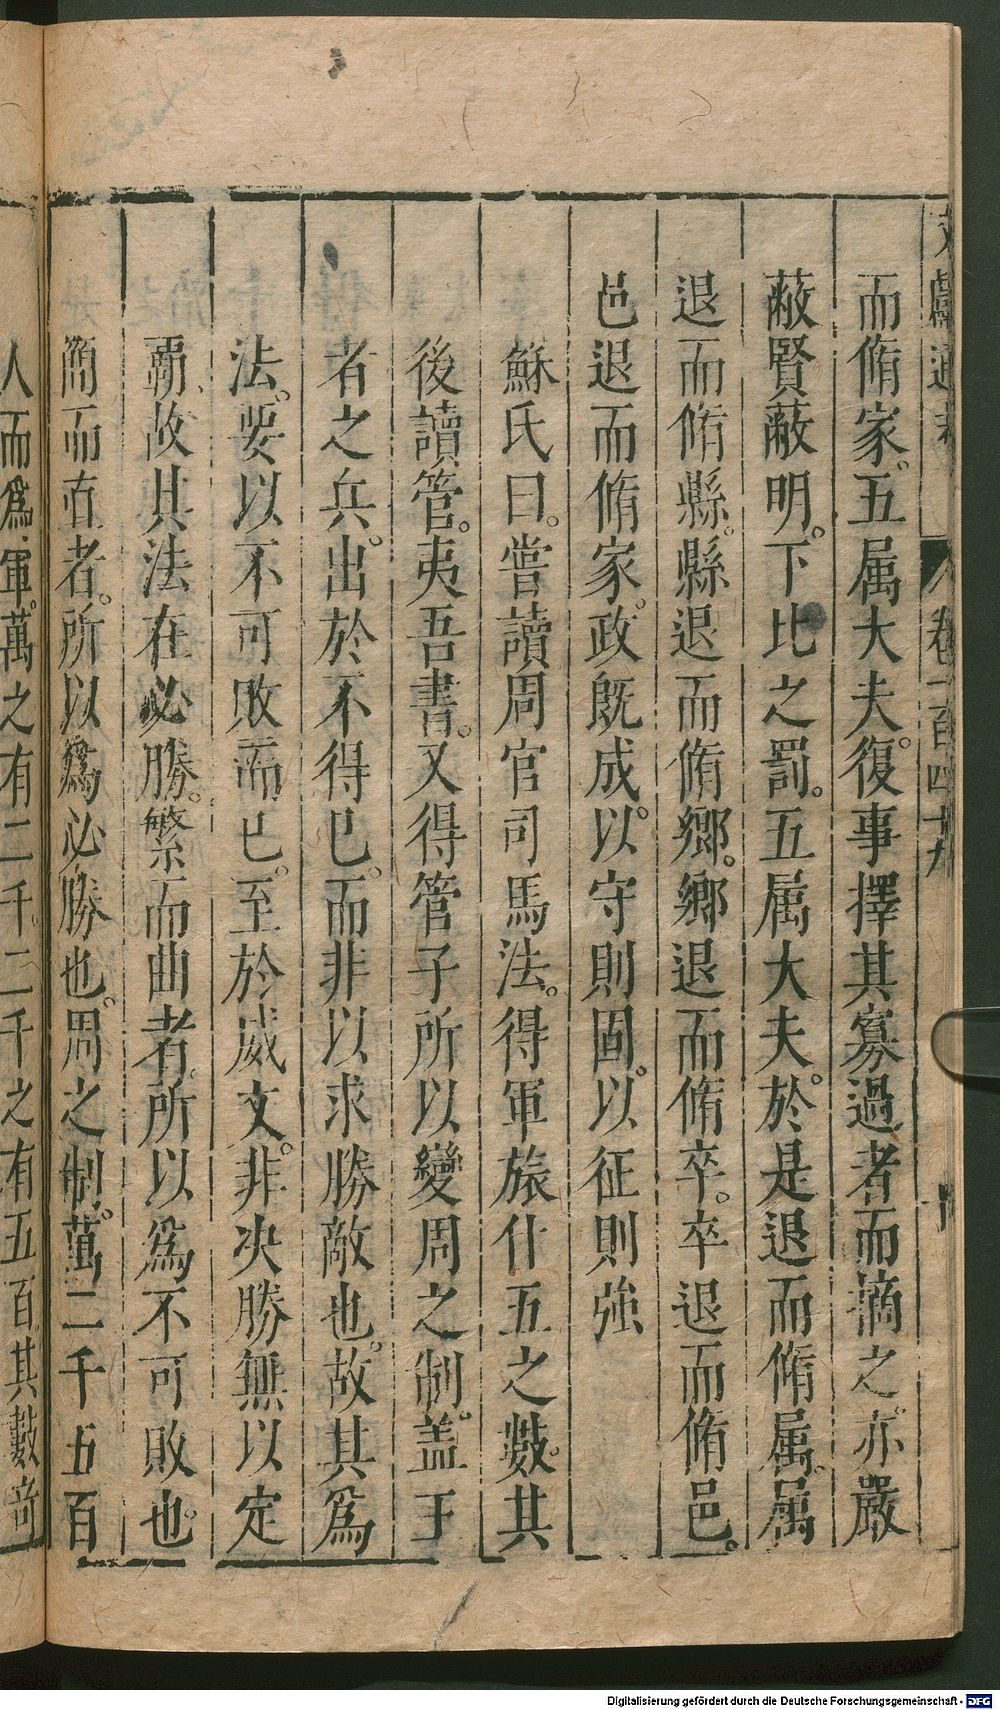 文獻通考 卷一百四十九
而脩家。五属大夫。復事擇其寡過者而謫之。亦嚴
蔽賢蔽明。下比之罰。五属大夫。於是退而脩属。属
退而脩縣。縣退而脩鄉。鄉退而脩卒。卒退而脩邑。
邑退而脩家。政既成。以守則固。以征則強
蘇氏曰。嘗讀周官司馬法。得軍旅什五之數。其
後讀管。夷吾書。又得管子所以變周之制。盖王
者之兵。出於不得已。而非以求勝敵也。故其爲
法。要以不可敗而已。至於威文。非决勝無以定
霸。故其法在必勝。繁而曲者。所以爲不可敗也。
簡而直者。所以爲必勝也。周之制。萬二千五百
人而爲軍。萬之有二千。二千之有五百其數奇
Digitalisierung gefördert durch die Deutsche Forschungsgemeinschaft - DFG